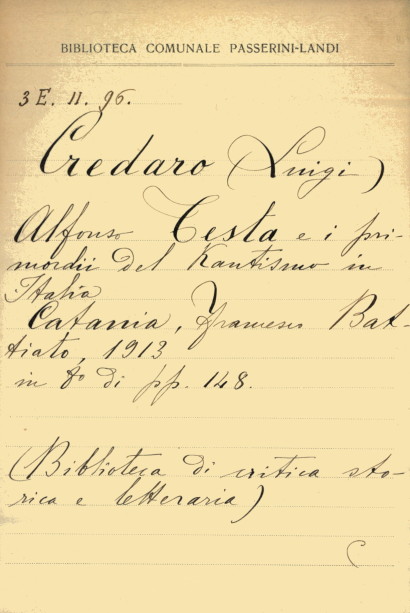 BIBLIOTECA COMUNALE PASSERINI-LANDI
3 E. 11. 96.
Credaro (Luigi)
Alfonso Testa e i pri-
mordii del Kantismo in
Italia
Catania, francesco Bat-
tiato, 1913
in 8º di pp. 148.
(Biblioteca di critica sto-
rica e letteraria)
C